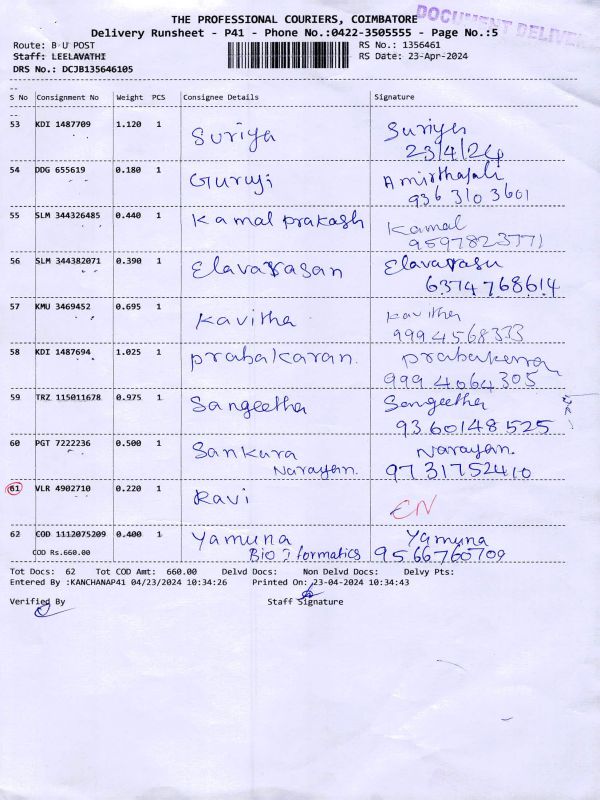 THE PROFESSIONAL COURIERS, COIMBATORE
DOCUMENT DELIVER
Delivery Runsheet - P41 - Phone No.:0422-3505555 - Page No.:5
Route: B U POST
RS No.: 1356461
Staff: LEELAVATHI
RS Date: 23-Apr-2024
DRS No.: DCJB135646105
S No Consignment No Weight PCS Consignee Details Signature
53 KDI 1487709 1.120 1 Suriya Suriya
23/4/24
54 DDG 655619 0.180 1 Guruji Amirthajali
936 310 3601
55 SLM 344326485 0.440 1 Kamal prakash Kamal
9597823771
56 SLM 344382071 0.390 1 Elavarasan Elavarasu
6374768614
57 KMU 3469452 0.695 1 Kavitha Kavitha
9994568333
58 KDI 1487694 1.025 1 prabakaran. prabakaran
999 4064305
59 TRZ 115011678 0.975 1 Sangeetha Sangeetha
9360148525
60 PGT 7222236 0.500 1 Sankara Narayan.
Narayan. 9731752410
61 VLR 4902710 0.220 1 Ravi CN
62 COD 1112075209 0.400 1 Yamuna Yamuna
COD Rs.660.00 Bio formatics 9566760709
Tot Docs: 62 Tot COD Amt: 660.00 Delvd Docs: Non Delvd Docs: Delvy Pts:
Entered By :KANCHANAP41 04/23/2024 10:34:26 Printed On: 23-04-2024 10:34:43
Verified By Staff Signature